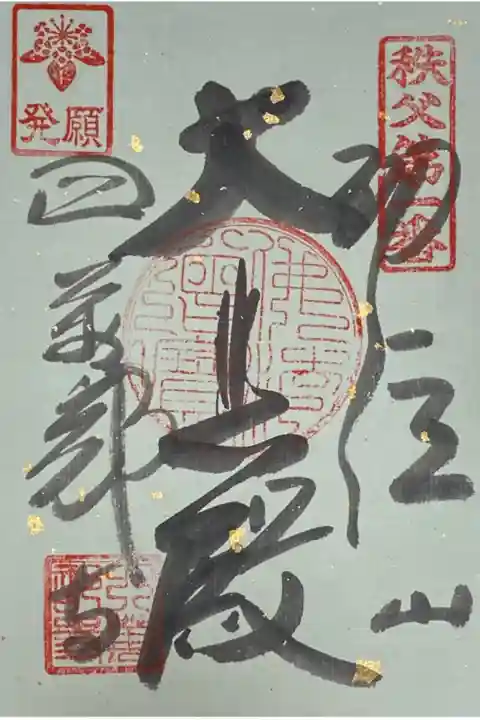 秩父第一番
誦経山
大悲殿
発願
四萬部寺